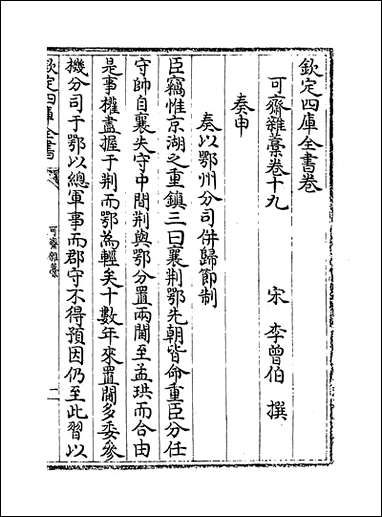 欽定四庫全書卷
可齋雜藁卷十九
宋 李曾伯 撰
奏申
奏以鄂州分司併歸節制
臣竊惟京湖之重鎮三曰襄荆鄂先朝皆命重臣分任
守帥自襄失守中間荆與鄂分置兩閫至孟珙而合由
是事權盡握于荆而鄂為輕矣十數年來置閫多委參
機分司于鄂以總軍事而郡守不得預因仍至此習以
欽定四庫全書
可齋雜藁
一